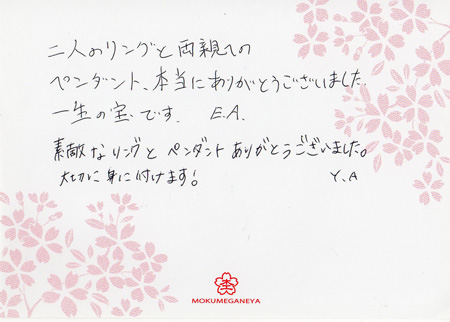 二人のリングと両親への
ペンダント、本当にありがとうございました。
一生の宝です。 E.A.
素敵なリングとペンダントありがとうございました。
大切に身に付けます! Y.A
杢
MOKUMEGANEYA